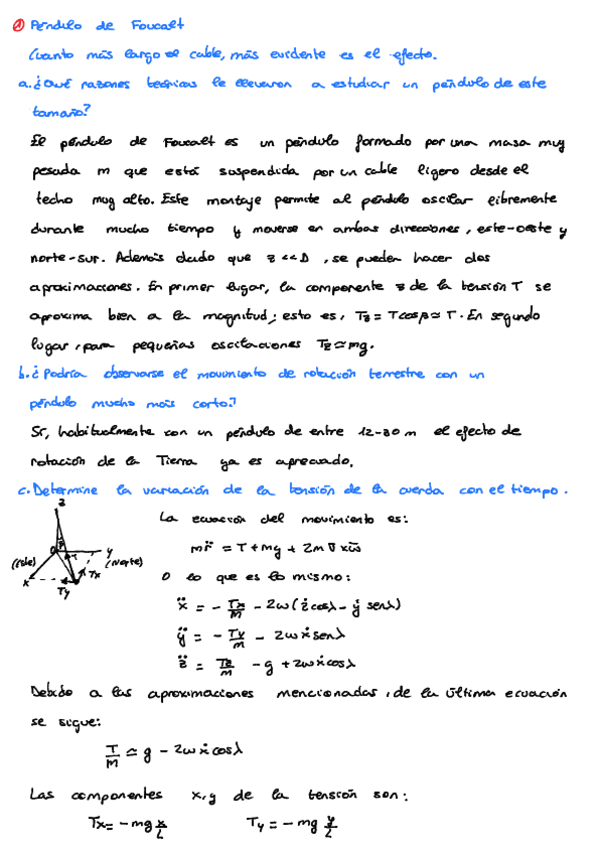 ① Péndulo de Foucalt
Cuanto más largo el cable, más evidente es el efecto.
a. ¿Qué razones teóricas le llevaron a estudiar un péndulo de este
tamaño?
El péndulo de Foucalt es un péndulo formado por una masa muy
pesada m que está suspendida por un cable ligero desde el
techo muy alto. Este montaje permite al péndulo oscilar libremente
durante mucho tiempo y moverse en ambas direcciones, este-oeste y
norte-sur. Además dado que z << D, se pueden hacer dos
aproximaciones. En primer lugar, la componente z de la tensión T se
aproxima bien a la magnitud; esto es, Tz = T cosβ ≈ T. En segundo
lugar, para pequeñas oscilaciones Tz ≈ mg.
b. ¿Podría observarse el movimiento de rotación terrestre con un
péndulo mucho más corto?
Sí, habitualmente con un péndulo de entre 12-30 m el efecto de
rotación de la Tierra ya es apreciado.
c. Determine la variación de la tensión de la cuerda con el tiempo.
z
La ecuación del movimiento es:
m r̈ = T + mg + 2m v x ω̄
(Este) x y (Norte)
Tx
Ty
O lo que es lo mismo:
ẍ = - Tx/M - 2ω(ż cosλ - ẏ senλ)
ÿ = - Ty/M - 2ω ẋ senλ
z̈ = Tz/M - g + 2ω ẋ cosλ
Debido a las aproximaciones mencionadas, de la última ecuación
se sigue:
T/M ≈ g - 2ω ẋ cosλ
Las componentes x,y de la tensión son:
Tx = - mg x/L Ty = - mg y/L